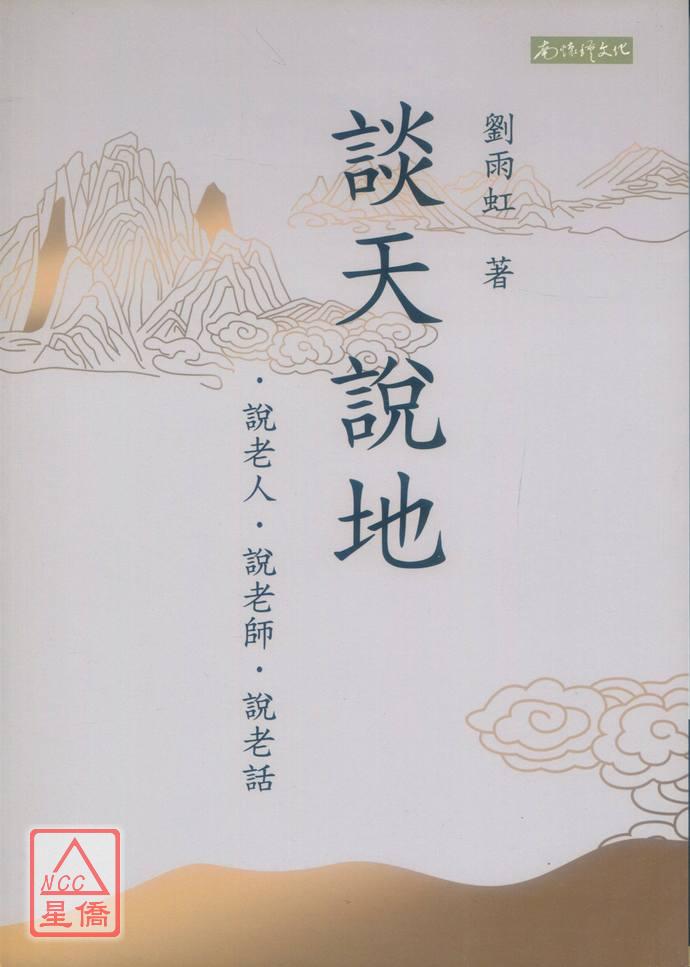 南懷瑾文化
劉雨虹 著
談天說地
·說老人·說老師·說老話
NCC
星僑